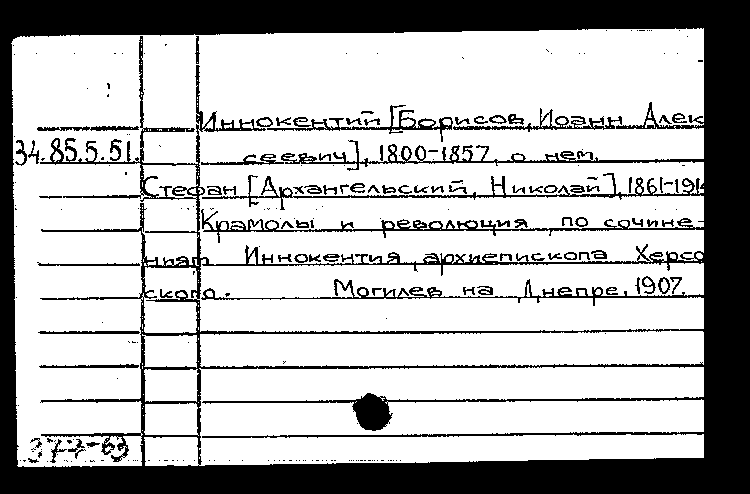 Иннокентий [Борисов, Иоанн Алек
34.85.5.51. сеевич], 1800-1857, о нем.
Стефан [Архангельский, Николай], 1861-191
Крамолы и революция, по сочине-
ниям Иннокентия, архиепископа Херсо
ского. Могилев на Днепре, 1907.
377-63